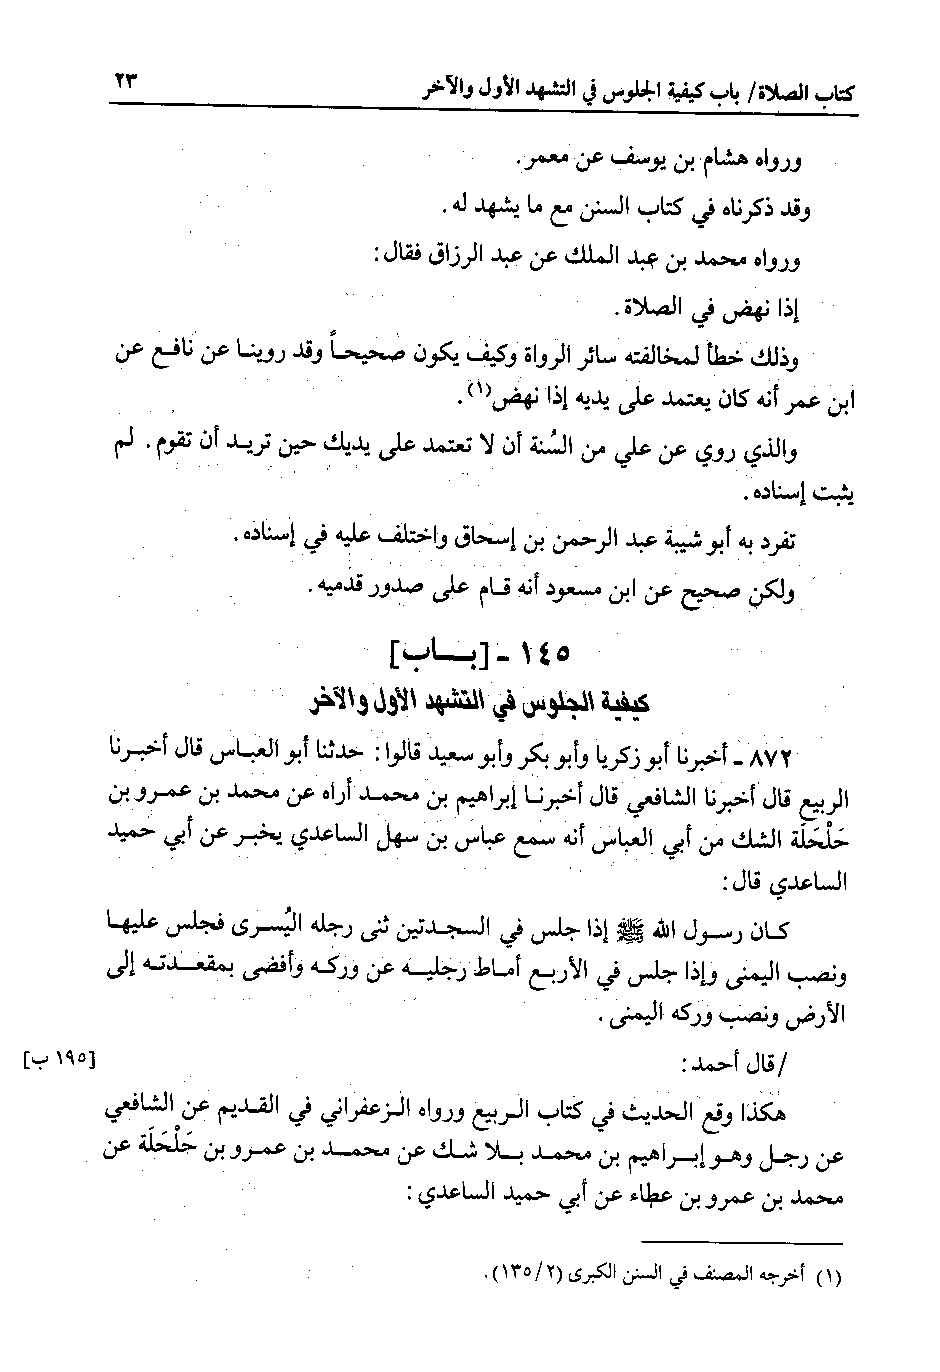 كتاب الصلاة/ باب كيفية الجلوس في التشهد الأول والآخر ٢٣
ورواه هشام بن يوسف عن معمر.
وقد ذكرناه في كتاب السنن مع ما يشهد له.
ورواه محمد بن عبد الملك عن عبد الرزاق فقال:
إذا نهض في الصلاة.
وذلك خطأ لمخالفته سائر الرواة وكيف يكون صحيحاً وقد روينا عن نافع عن
ابن عمر أنه كان يعتمد على يديه إذا نهض(١).
والذي روي عن علي من السُنة أن لا تعتمد على يديك حين تريد أن تقوم. لم
يثبت إسناده.
تفرد به أبو شيبة عبد الرحمن بن إسحاق واختلف عليه في إسناده.
ولكن صحيح عن ابن مسعود أنه قام على صدور قدميه.
١٤٥ - [باب]
كيفية الجلوس في التشهد الأول والآخر
٨٧٢ - أخبرنا أبو زكريا وأبو بكر وأبو سعيد قالوا: حدثنا أبو العباس قال أخبرنا
الربيع قال أخبرنا الشافعي قال أخبرنا إبراهيم بن محمد أراه عن محمد بن عمرو بن
حَلْحَلَة الشك من أبي العباس أنه سمع عباس بن سهل الساعدي يخبر عن أبي حميد
الساعدي قال:
كان رسول الله ﷺ إذا جلس في السجدتين ثنى رجله اليُسرى فجلس عليها
ونصب اليمنى وإذا جلس في الأربع أماط رجليه عن وركه وأفضى بمقعدته إلى
الأرض ونصب وركه اليمنى.
/قال أحمد: [١٩٥ ب]
هكذا وقع الحديث في كتاب الربيع ورواه الزعفراني في القديم عن الشافعي
عن رجل وهو إبراهيم بن محمد بلا شك عن محمد بن عمرو بن حَلْحَلَة عن
محمد بن عمرو بن عطاء عن أبي حميد الساعدي:
(١) أخرجه المصنف في السنن الكبرى (٢/ ١٣٥).